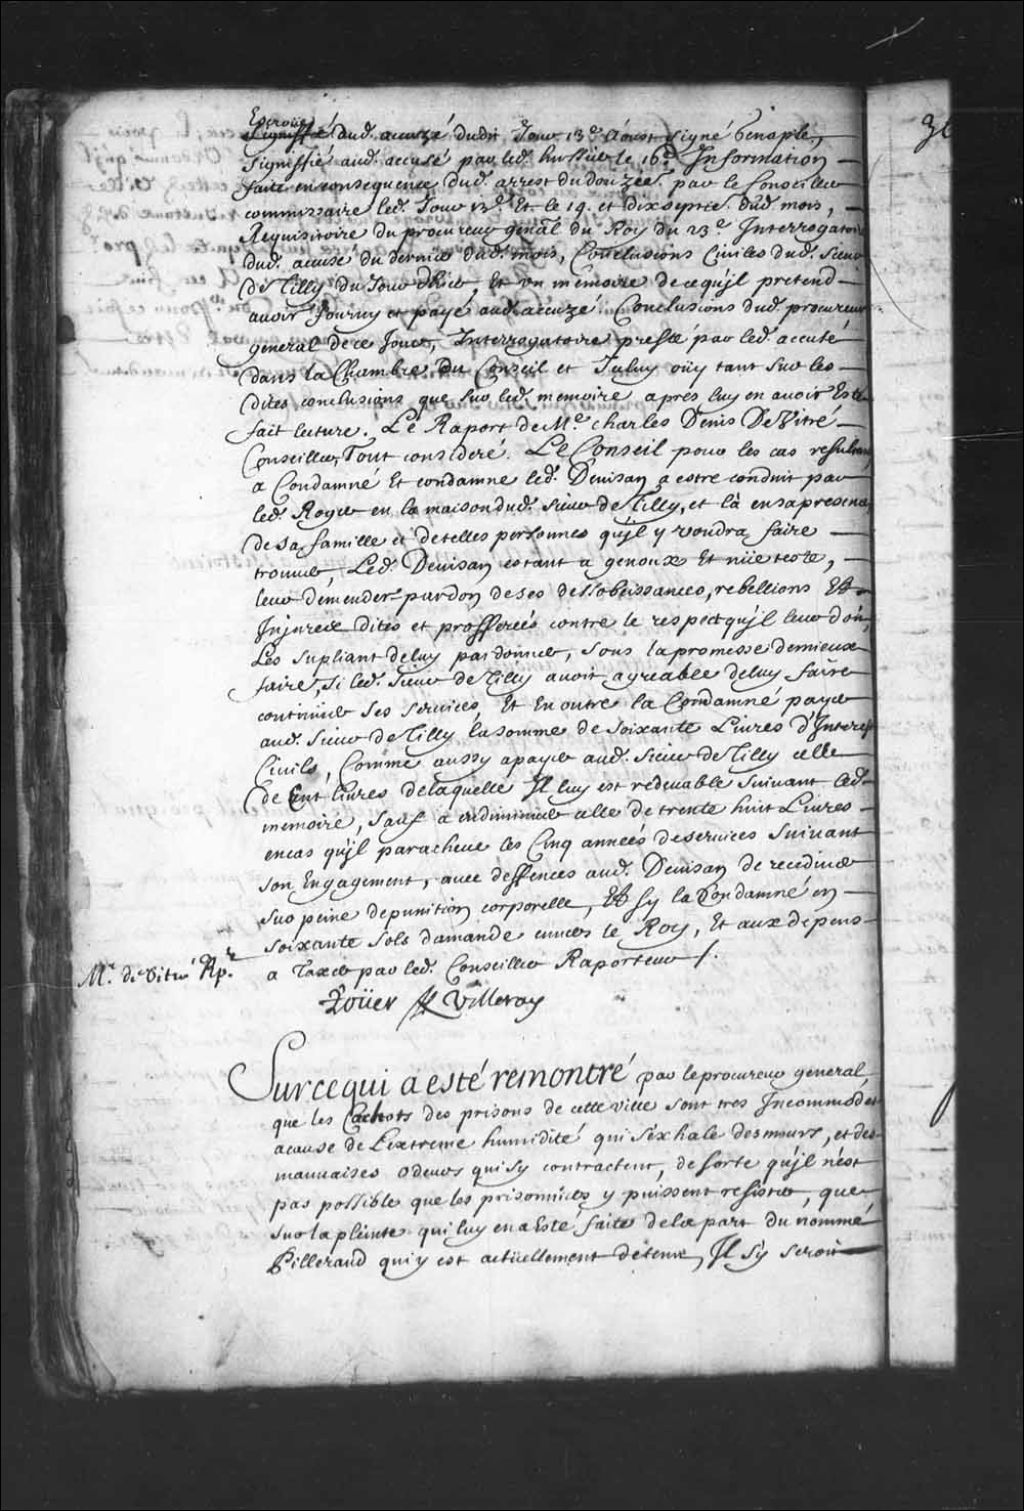 Escroüe
Signiffié aud. accuzé dudit Jour 13.e Aoust signé Genaple,
Signiffié aud. accusé par led. huissier le 16.e Information
faite en consequence dud. arrest du douze.e par le Conseiller
commissaire led. Jour 13.e Et le 14. et dixseptie. dud. mois,
Requisitoire du procureur gñal du Roy du 23.e Interrogatoire
dud. accusé du dernier dud. mois, Conclusions Civiles dud. Sieur
de Tilly du Jour d'hier, Et un memoire de ce qu'jl pretend
auoir fourny et payé aud. accuzé. Conclusions dud. procureur
general de ce Jour, Interrogatoire presté par led. accusé
dans la Chambre du Conseil et Iceluy oüy tant sur les
dites conclusions que sur led. memoire apres luy en auoir Esté
fait lecture. Le Raport de M.e charles Denis De Vitré
Conseiller, Tout consideré. Le Conseil pour les cas resultans
a Condamné Et condamne led. Deuisan a estre conduit par
led. Roger en la maison dud. sieur de Tilly, et là en sa presence
de sa famille et de telles personnes qu'jl y voudra faire
trouuer, Led. Deuisan estant a genoux Et nüe teste,
leur demender pardon de ses desobeissances, rebellions Et
Injures dites et profferées contre le respect qu'jl leur doit,
Les supliant de luy pardonner, sous la promesse de mieux
faire, si led. sieur de Tilly auoit agreable de luy faire
continüer ses seruices, Et En outre la Condamné payer
aud. sieur de Tilly la somme de soixante Liures d'Interest
Ciuils, Comme aussy a payer aud. sieur de Tilly celle
de Cent liures de laquelle Il luy est redeuable suiuant led.
memoire, sauf a en diminüer celle de trente huit Liures
en cas qu'jl paracheue les Cinq années de seruices suiuant
son Engagement, auec deffences aud. Deuisan de recediuer
sur peine de punition corporelle, Et sy la Condamné en
soixante sols damande enuers le Roy, Et aux depens
a Taxer par led. Conseiller Raporteur /.
M.r de Vitré Rp.r
Roüer de Villeray
Sur ce qui a esté remontré par le procureur general
que les Cachots des prisons de cette ville sont tres Incommodes
a cause de L'extreme humidité qui s'exhale des murs, et des
mauuaises odeurs qui sy contractent, de sorte qu'jl n'est
pas possible que les prisonniers y puissent resister, que
sur la pleinte qui luy en a Esté faite de la part du nommé
Pillerand qui y est actüellement detenu, Il s'y seroit